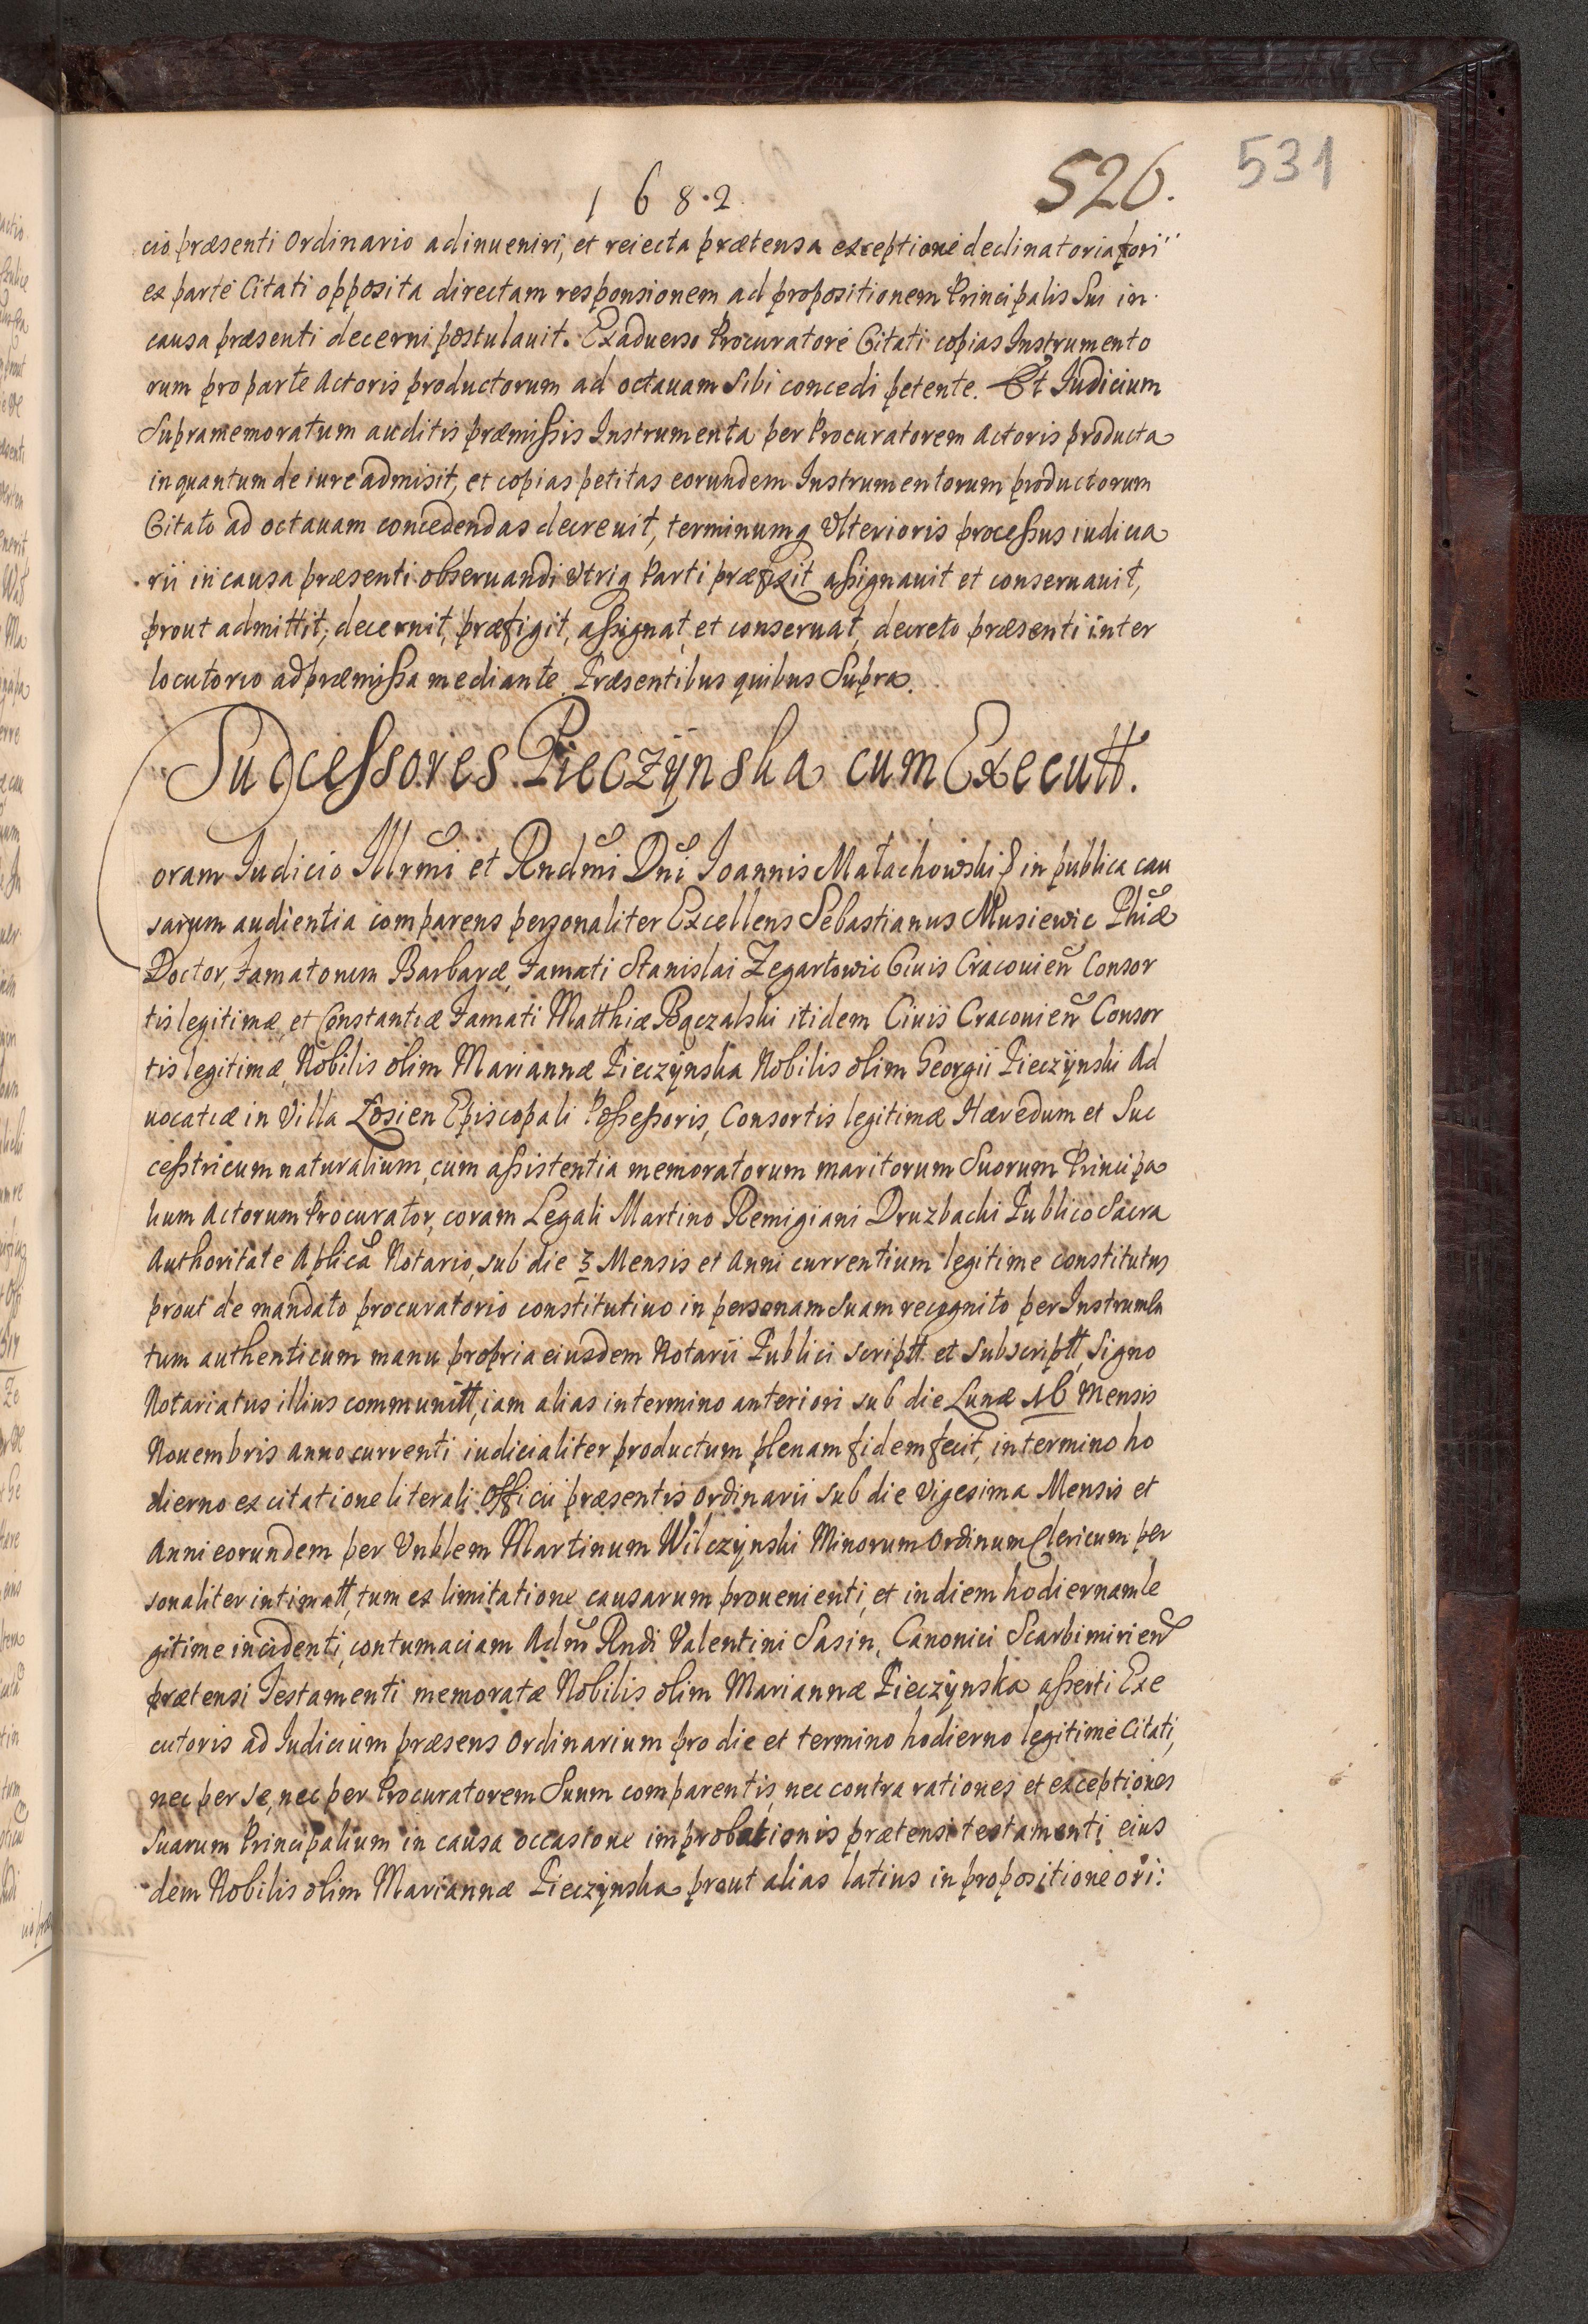 1 6 8 . 2
526.
531
cio præsenti Ordinario adinueniri, et reiecta prætensa exceptione declinatoria fori
ex parte Citati opposita directam responsionem ad propositionem Principalis Sui in
causa præsenti decerni postulauit. Exaduerso Procuratore Citati copias Instrumento
rum pro parte Actoris productorum ad octauam Sibi concedi petente. Et Iudicium
Supramemoratum auditis præmissis Instrumenta per Procuratorem Actoris producta
inquantum de iure admisit, et copias petitas eorundem Instrumentorum productorum
Citato ad octauam concedendas decreuit, terminumq Vlterioris processus iudicia
rii in causa præsenti obseruandi Vtriq Parti præfixit assignauit et conseruauit,
prout admittit, decernit, præfigit, assignat, et conseruat, decreto præsenti inter
locutorio ad præmissa mediante. Præsentibus quibus Supra.
Successores Pieczÿnska cum Executt.
oram Iudicio Illrmi et Rndmi Dni Ioannis Małachowski in publica cau
sarum audientia comparens personaliter Excellens Sebastianus Musiewic Phiæ
Doctor, Famatorum Barbaræ, Famati Stanislai Zegartowic Ciuis Cracouien Consor
tis legitimæ, et Constantiæ Famati Matthiæ Bączalski itidem Ciuis Cracouien Consor
tis legitimæ, Nobilis olim Mariannæ Pieczÿnska Nobilis olim Georgii Pieczÿnski Ad
uocatiæ in Villa Łosien Episcopali Possessoris, Consortis legitimæ Hæredum et Suc
cestricum naturalium, cum assistentia memoratorum maritorum Suorum Principa
lium Actorum Procurator, coram Legali Martino Remigiani Druzbacki Publico Sacra
Authoritate Aplica Notario, sub die 3 Mensis et Anni currentium legitime constitutus
prout de mandato procuratorio constitutiuo in personam Suam recognito per Instrumen
tum authenticum manu propria eiusdem Notarii Publici scriptt et Subscriptt, Signo
Notariatus illius communitt, iam alias in termino anteriori sub die Lunæ 16 Mensis
Nouembris anno currenti iudicialiter productum plenam fidem fecit, in termino ho
dierno ex citatione literali Officii præsentis Ordinarii sub die Vigesima Mensis et
Anni eorundem per Vnblem Martinum Wilczÿnski Minorum Ordinum Clericum per
sonaliter intimatt, tum ex limitatione causarum prouenienti, et in diem hodiernam le
gitime incidenti, contumaciam Adm Rndi Valentini Sasin, Canonici Scarbimirien
prætensi Testamenti memoratæ Nobilis olim Mariannæ Pieczÿnska asserti Exe
cutoris ad Iudicium præsens Ordinarium pro die et termino hodierno legitime Citati,
nec per se, nec per Procuratorem Suum comparentis, nec contra rationes et exceptiones
Suarum Principalium in causa occasione improbationis prætensi testamenti eius
dem Nobilis olim Mariannæ Pieczÿnska prout alias latius in propositione ori: